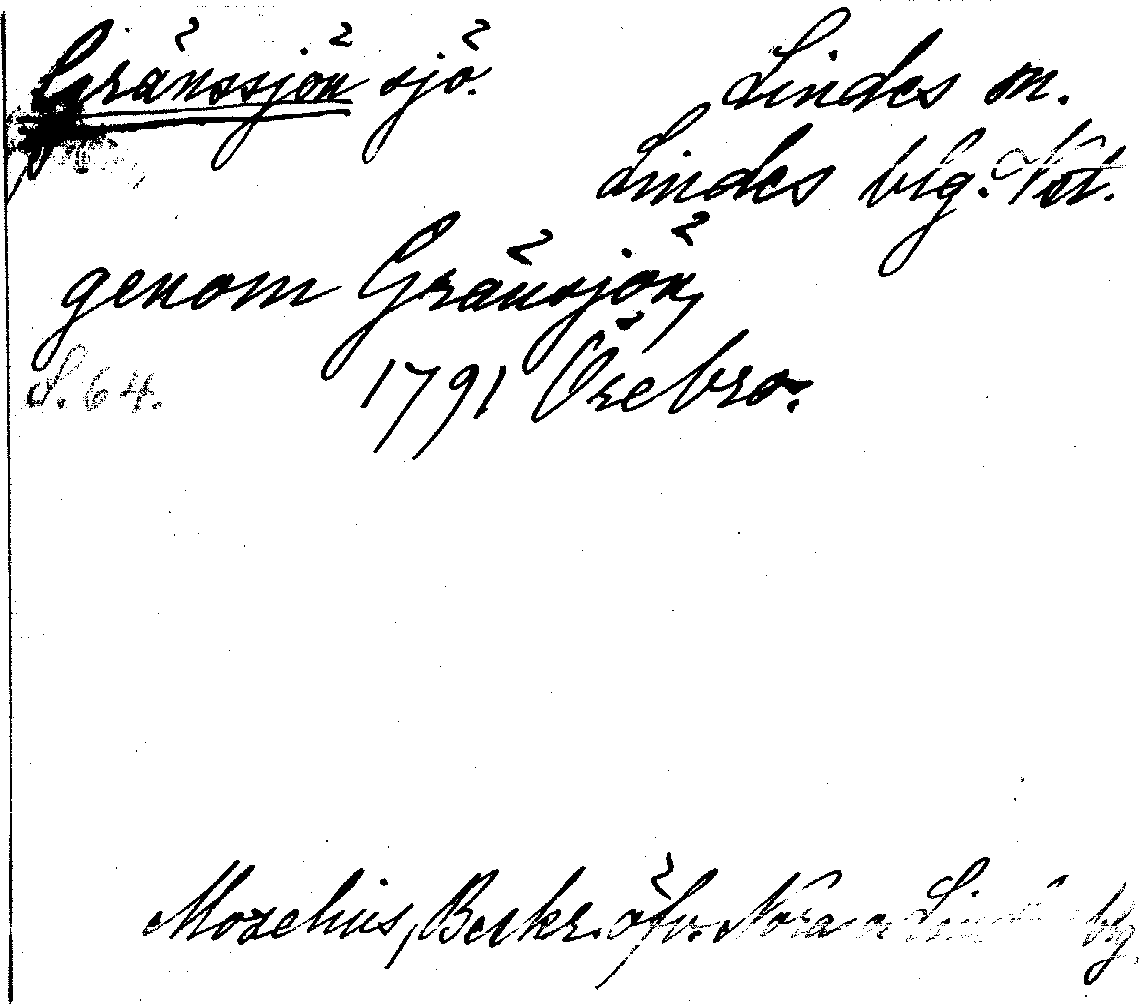 Gränssjön sjö. Lindes m.
Lindes blg. Vstl.
genom Gränsjön,
S. 64. 1791 Örebro.
Mozelius, Beskr. öfv. Nora o Linde blg.